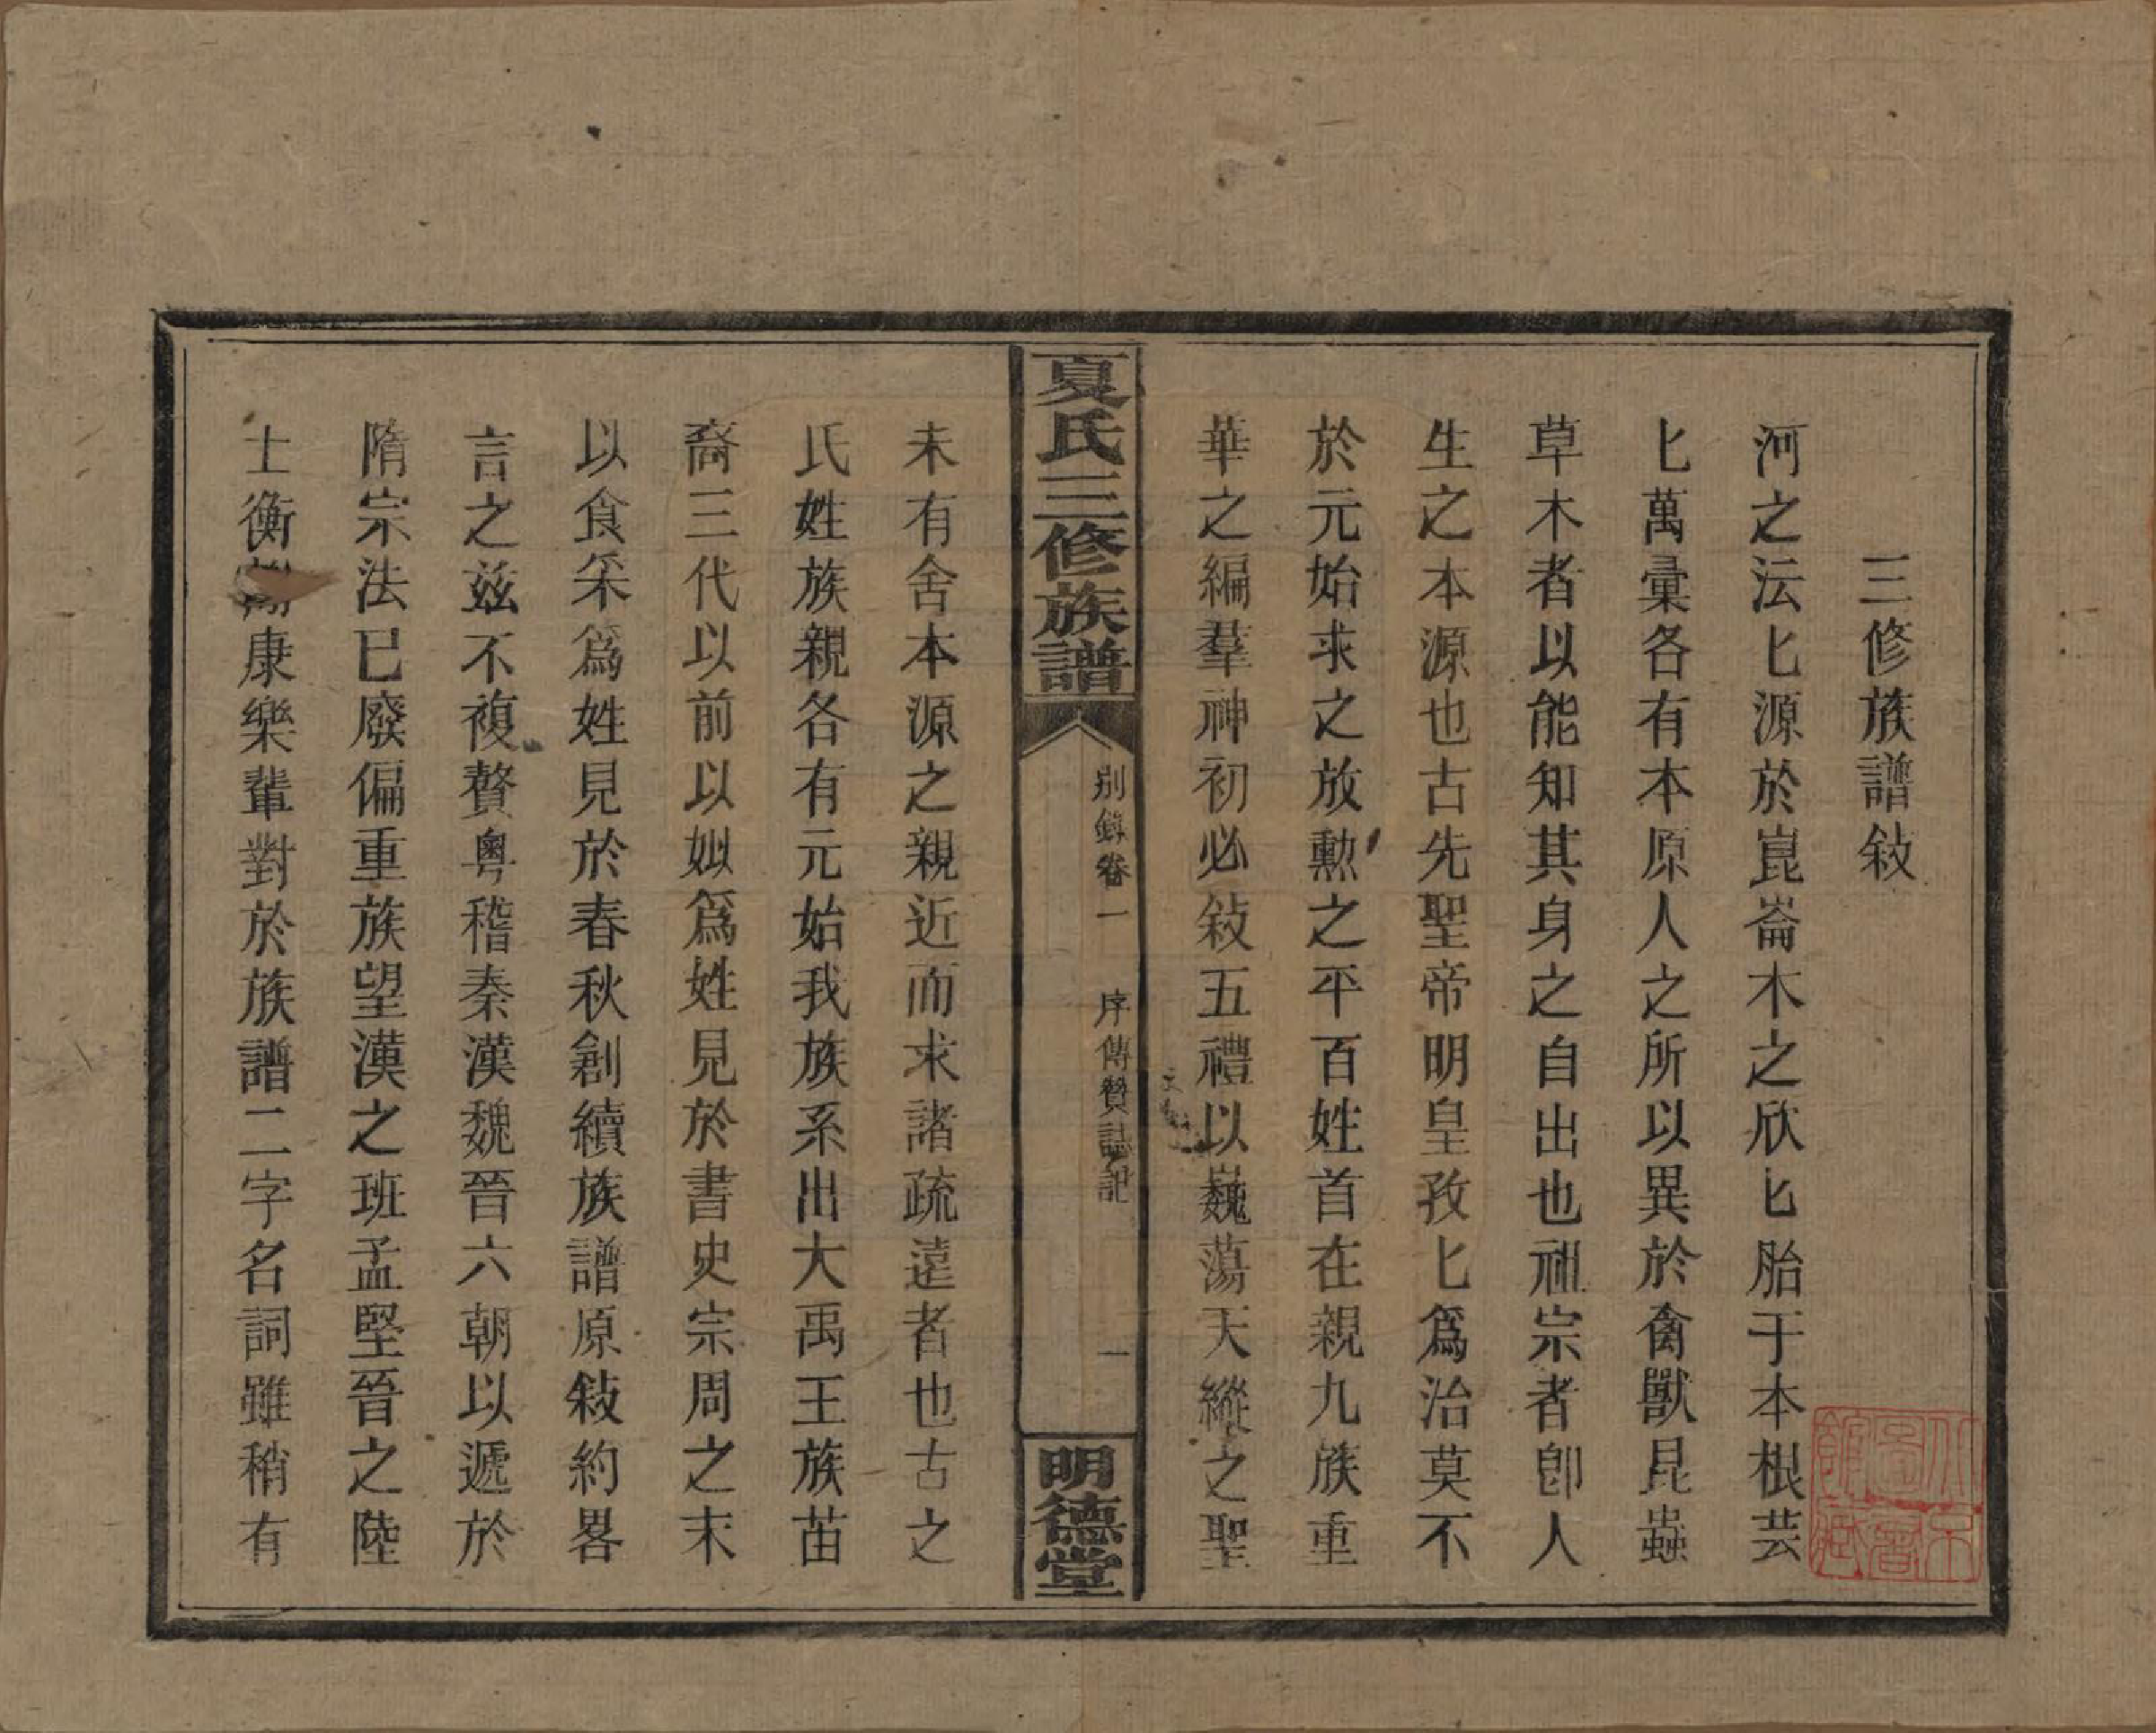 三修族譜敍
河之沄匕源於崑崙木之欣匕胎于本根芸
匕萬彙各有本原人之所以異於禽獸昆蟲
草木者以能知其身之自出也祖宗者卽人
生之本源也古先聖帝明皇孜匕爲治莫不
於元始求之放勲之平百姓首在親九族重
華之編羣神初必敍五禮以巍蕩天縱之聖
夏氏三修族譜
別錄卷一 序傳贊誌記 一
明德堂
未有舍本源之親近而求諸疏遠者也古之
氏姓族親各有元始我族系出大禹王族苗
裔三代以前以姒爲姓見於書史宗周之末
以食采爲姓見於春秋創續族譜原敍約畧
言之兹不複贅粵稽秦漢魏晉六朝以遞於
隋宗法已廢偏重族望漢之班孟堅晉之陸
士衡康樂輩對於族譜二字名詞雖稍有
北京圖書館藏